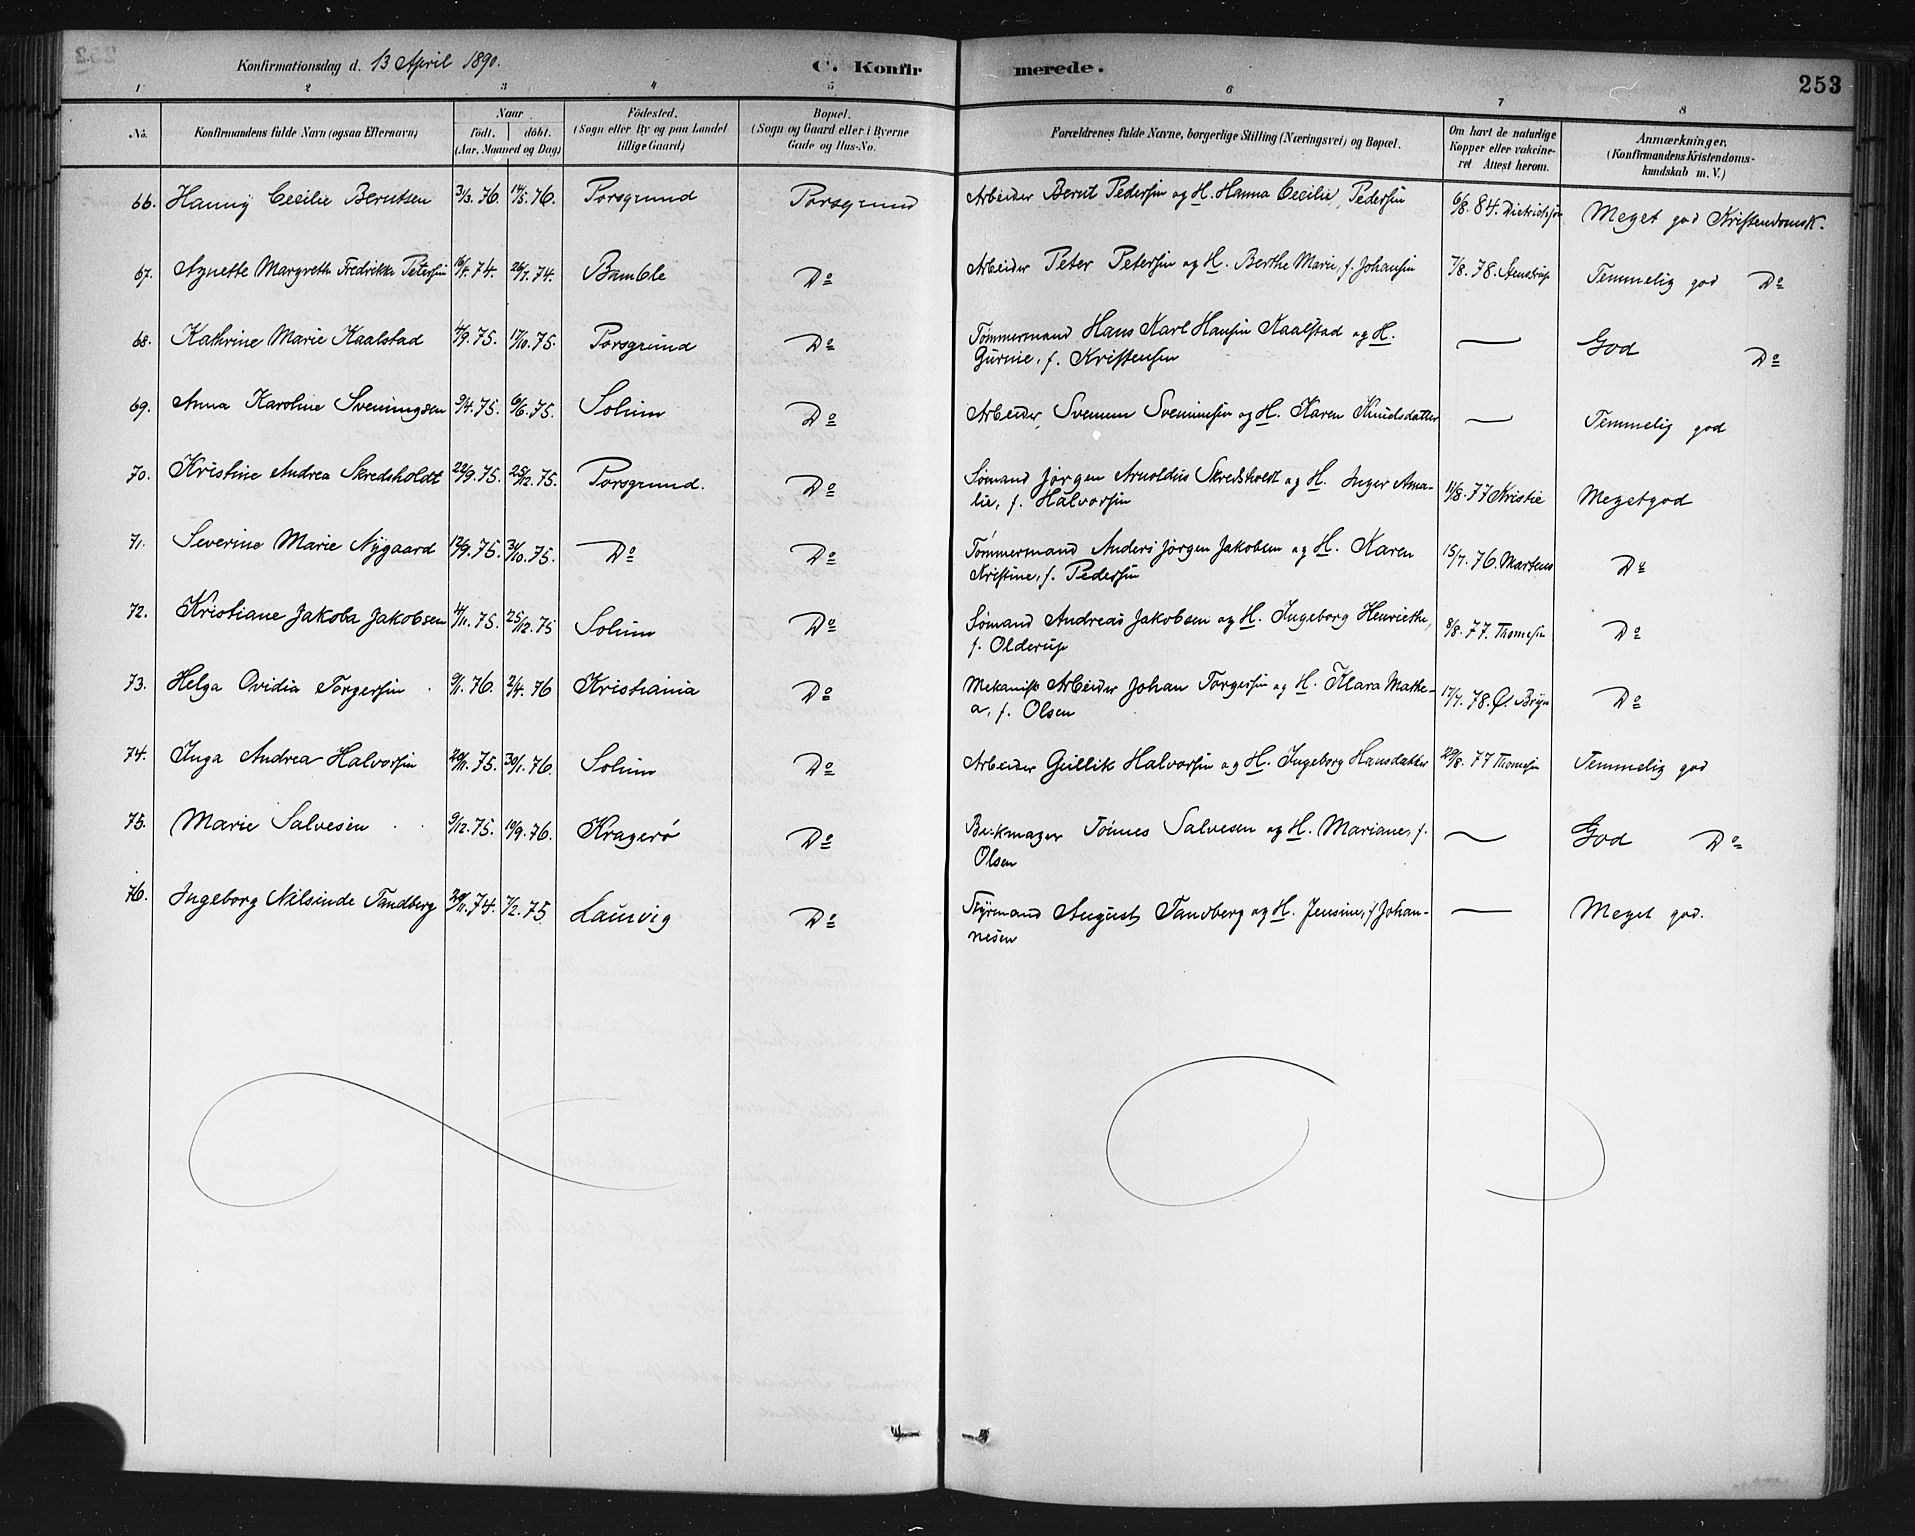 Konfirmationsdag d. 13 April 1890.
C. Konfirmerede.
253
1 2 3 4 5 6 7 8
No.
Konfirmandens fulde Navn (ogsaa Efternavn)
Naar
födt. döbt.
(Aar, Maaned og Dag)
Födested.
(Sogn eller By og paa Landet
tillige Gaard)
Bopæl.
(Sogn og Gaard eller i Byerne
Gade og Hus-No.
Forældrenes fulde Navne, borgerlige Stilling (Næringsvei) og Bopæl.
Om havt de naturlige
Kopper eller vakcine-
ret Attest herom.
Anmærkninger.
(Konfirmandens Kristendoms-
kundskab m. V.)
66. Hanny Cecilie Berntsen 3/3. 76. 14/5. 76. Porsgrund Porsgrund Arbeider Bernt Pedersen og H. Hanna Cecilie Pedersen 6/8. 84. Dietrichson Meget god Kristendomsk.
67. Agnette Margrethe Fredrikke Petersen 16/1. 74. 26/7. 74. Bamble Do Arbeider Peter Petersen og H. Berthe Marie, f. Johansen 7/8. 78. Stenstrup Temmelig god Do
68. Kathrine Marie Kaalstad 4/9. 75. 17/10. 75. Porsgrund Do Tømmermand Hans Karl Hansen Kaalstad og H.
Gurine, f. Kristensen — God Do
69. Anna Karoline Svenningsen 9/4. 75. 6/6. 75. Solum Do Arbeider, Svennum Svenningsen og H. Karen Knudsdatter — Temmelig god
70. Kristine Andrea Skredsholdt 22/9. 75. 25/12. 75. Porsgrund. Do Sømand Jørgen Arnoldus Skredsholdt og H. Inger Ama-
lie, f. Halvorsen 11/8. 77 Kristie Meget god
71. Severine Marie Nygaard 12/9. 75. 31/10. 75. Do Do Tømmermand Anders Jørgen Jakobsen og H. Karen
Kristine, f. Pedersen 15/7. 76. Martens Do
72. Kristiane Jakoba Jakobsen 4/11. 75. 25/12. 75 Solum Do Sømand Andreas Jakobsen og H. Ingeborg Henriette,
f. Olderup 8/8. 77. Thomesen Do
73. Helga Ovidia Torgersen 9/1. 76. 2/4. 76 Kristiania Do Mekanisk Arbeider Johan Torgersen og H. Klara Mathe-
a, f. Olsen 17/7. 78. O. Bryn Do
74. Inga Andrea Halvorsen 20/11. 75. 30/1. 76. Solum Do Arbeider Gullik Halvorsen og H. Ingeborg Hansdatter 29/8. 77 Thomesen Temmelig god
75. Marie Salvesen 9/12. 75. 10/9. 76. Kragerø Do Tønnes Salvesen og H. Mariane, f.
Olsen — God Do
76. Ingeborg Nilsinde Tandberg 20/11. 74. 7/2. 75 Laurvig Do Styrmand August Tandberg og H. Jensine, f. Johan-
nesen — Meget god.